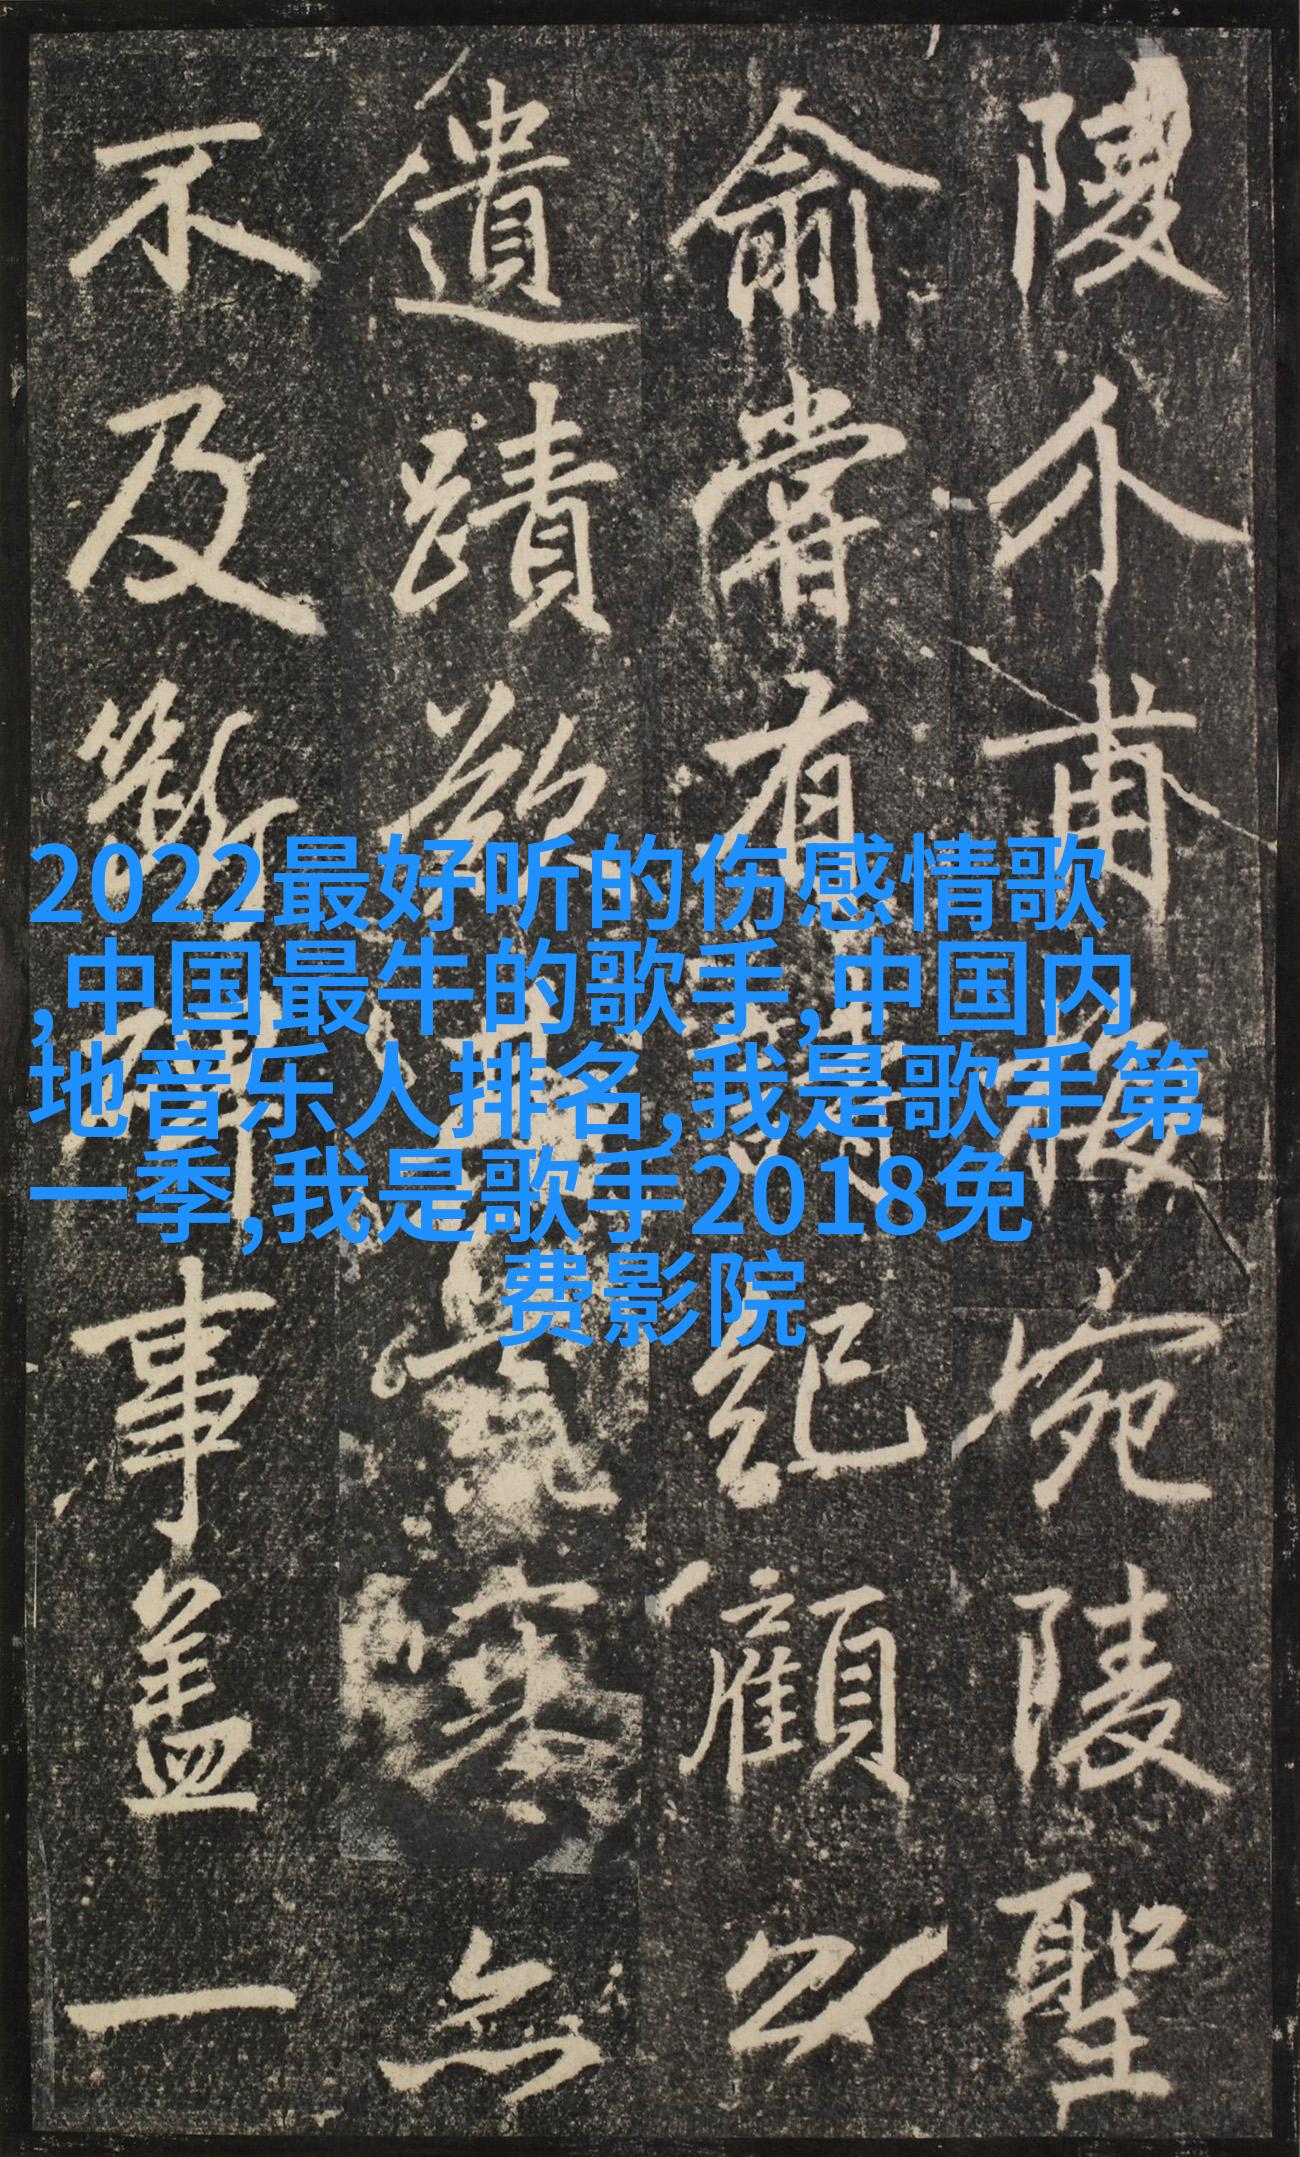 陵介甫梅宛陵聖
俞嘗有詩紀顧以
遺蹟欲無
不及斷碑事蓋一
2022最好听的伤感情歌
,中国最牛的歌手,中国内
地音乐人排名,我是歌手第
一季,我是歌手2018免
费影院